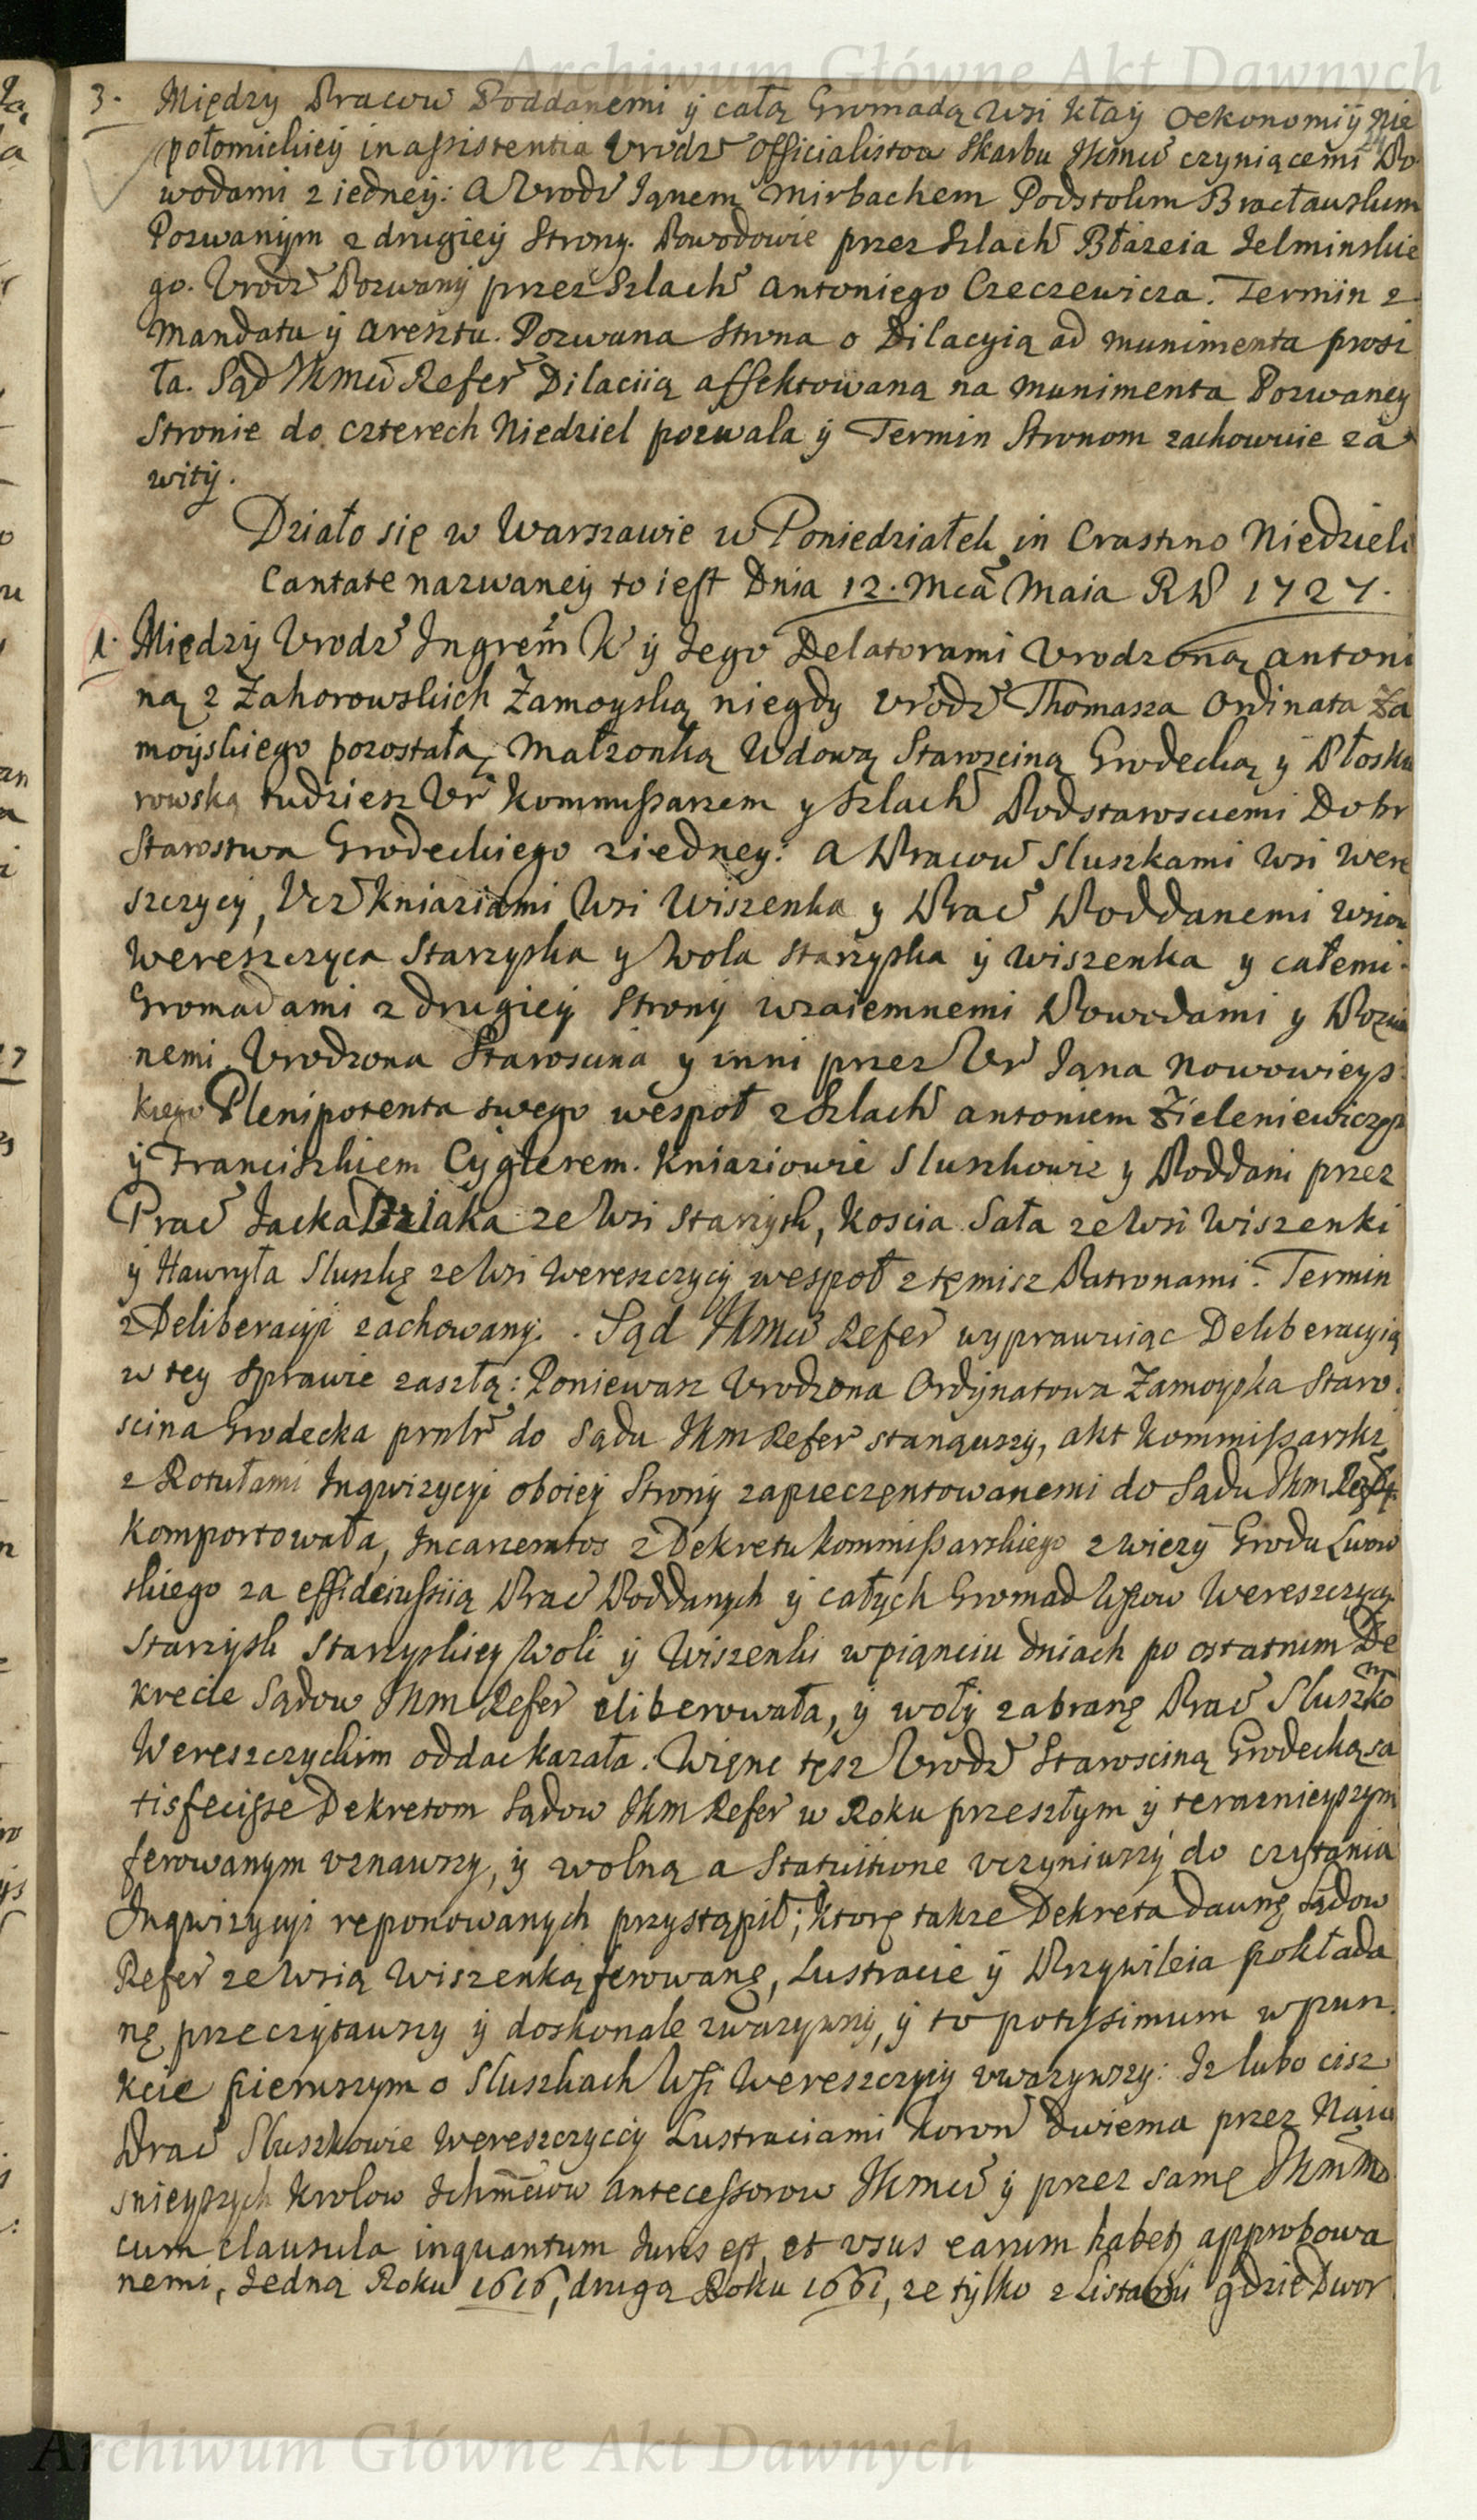 Archiwum Główne Akt Dawnych
3. Między Pracow Poddanemi ÿ całą Gromadą wsi Kłaÿ Oekonomiÿ Nie
połomickieÿ in assistentia Vrodz Officialistow Skarbu JKmci czyniącemi Po
wodami z iedneÿ: A Vrodz Janem Mirbachem Podstolim Bracławskim
Pozwanÿm z drugieÿ Strony. Powodowie przez Szlach Błazeia Jelminskie
go. Vrodz Pozwanÿ przez Szlach Antoniego Czeczewicza. Termin z
Mandatu ÿ Aresztu. Pozwana Strona o Dilacyią ad munimenta prosi
ła. Sąd JKmci Refer Dilaciią affektowaną na munimenta Pozwaney
Stronie do czterech Niedziel pozwala ÿ Termin Stronom zachowuie za
witÿ.
Działo się w Warszawie w Poniedziałek in Crastino Niedzieli
Cantate nazwaneÿ to iest Dnia 12. Mca Maia RP 1727.
1. Międzÿ Vrodz Ingrem K ÿ Jego Delatorami Vrodzoną Antoni
ną z Zahorowskich Zamoyską niegdy Vrodz Thomasza Ordinata Za
moÿskiego pozostałą Małzonką Wdową Staroscing Grodecką ÿ Płosku
rowską tudziesz Vr Kommissarzem y Szlach Podstarosciemi Dobr
Starostwa Grodeckiego ziedney: A Pracow Sluszkami wsi Were
szczycÿ, Vcz Kniaziami Wsi Wiszenka y Prac Poddanemi wsiow
Wereszczyca Starzyska y Wola Starzyska ÿ Wiszenka y całemi
Gromadami z drugieÿ Stronÿ wzaiemnemi Powodami y Pozwa
nemi Vrodzona Staroscina y inni przez Vr Jana Nowowieys
kiego Plenipotenta swego wespoł z Szlach Antoniem Zieleniewiczem
ÿ Franciszkiem Cÿglerem. Kniaziowie Sluszkowie y Poddani przez
Prac Jacka Dziaka ze Wsi Starzysk, Koscia Sała ze Wsi Wiszenki
ÿ Hawryła Sluszkę ze Wsi Wereszczycÿ wespoł z tęmisz Patronami. Termin
z Deliberacyi zachowanÿ. Sąd JKmci Refer wyprawuiąc Deliberacyią
w tey sprawie zaszłą: Poniewasz Vrodzona Ordÿnatowa Zamoyska Staro
scina Grodecka prntr do Sądu JKm Refer stanąwszy, akt Kommissarski
z Rotułami Inqwizycyi oboieÿ Stronÿ zapieczętowanemi do Sądu JKm Refer
komportowała, Incarceratos z Dekretu Kommissarskiego z wiezÿ Grodu Lwow
skiego za effideiussiią Prac Poddanych ÿ całÿch Gromad Wsiow Wereszczycy
Starzysk Starzyskiey Woli ÿ Wiszenki wpiąnciu dniach po ostatnim De
krecie Sądow JKm Refer eliberowała, ÿ wołÿ zabranę Prac Sluszkom
Wereszczyckim oddac kazała. Więnc tęsz Vrodz Staroscing Grodecką sa
tisfecisse Dekretom Sądow JKm Refer w Roku przeszłym ÿ teraznieyszym
ferowanym vznawszy, ÿ wolną a Statuitione vczyniwszÿ do czytania
Inqwizycyi reponowanych przystąpił; ktorę takze Dekreta dawnę Sądow
Refer ze Wsią Wiszenką ferowanę, Lustracie ÿ Przywileia pokłada
nę przeczÿtawszy ÿ doskonale zwazywszÿ, ÿ to potissimum w pun
kcie pierwszym o Sluszkach Wsi Wereszczycÿ vwazywszy: Iz lubo cisz
Prac Sluszkowie Wereszczyccÿ Lustraciami Koron dwiema przez Naia
snieyszych Krolow Ichmciow Antecessorow JKmci ÿ przez samę JKmc
cum clausula inquantum Iuris est, et vsus earum habetz approbowa
nemi, Jedną Roku 1616, drugą Roku 1661, ze tylko z Listami gdzie Dwor
Archiwum Główne Akt Dawnych